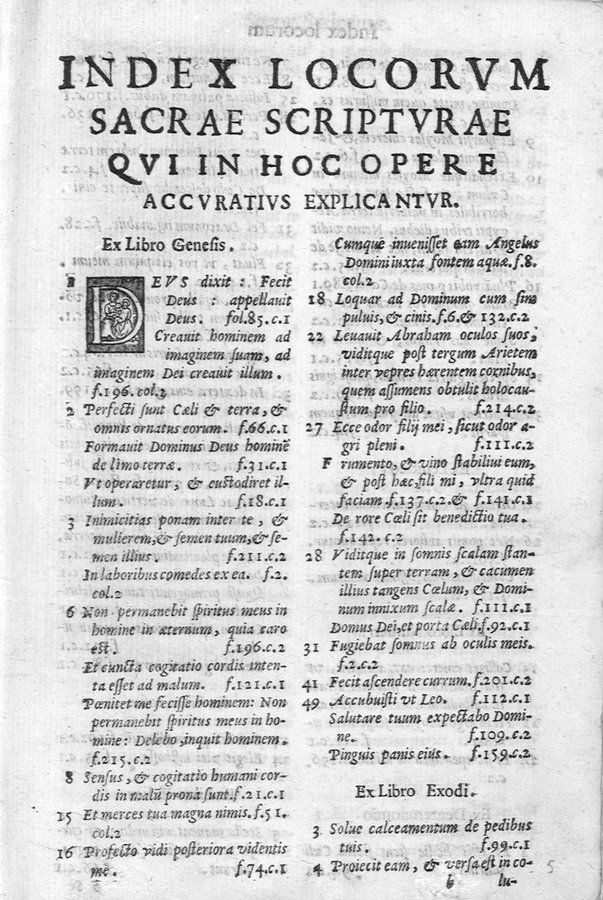 INDEX LOCORVM
SACRAE SCRIPTVRAE
QVI IN HOC OPERE
ACCVRATIVS EXPLICANTVR.
Ex Libro Genesis.
1 DEVS dixit : Fecit
Deus : appellauit
Deus. fol.85.c.1
Creauit hominem ad
imaginem suam, ad
imaginem Dei creauit illum.
f.196.col.2
2 Perfecti sunt Cæli & terra, &
omnis ornatus eorum. f.66.c.1
Formauit Dominus Deus hominẽ
de limo terræ. f.31.c.1
Vt operaretur, & custodiret il-
lum. f.18.c.1
3 Inimicitias ponam inter te, &
mulierem, & semen tuum, & se-
men illius. f.211.c.2
In laboribus comedes ex ea. f.2.
col.2
6 Non permanebit spiritus meus in
homine in æternum, quia caro
est. f.196.c.2
Et cuncta cogitatio cordis inten-
ta esset ad malum. f.121.c.1
Pœnitet me fecisse hominem: Non
permanebit spiritus meus in ho-
mine: Delebo, inquit hominem.
f.215.c.2
8 Sensus, & cogitatio humani cor-
dis in malũ prona sunt. f.21.c.1
15 Et merces tua magna nimis. f.51.
col.2
16 Profecto vidi posteriora videntis
me. f.74.c.1
Cumque inuenisset eam Angelus
Domini iuxta fontem aquæ. f.8.
col.2
18 Loquar ad Dominum cum sim
puluis, & cinis. f.6.& 132.c.2
22 Leuauit Abraham oculos suos,
viditque post tergum Arietem
inter vepres hærentem cornibus,
quem assumens obtulit holocau-
stum pro filio. f.214.c.2
27 Ecce odor filij mei, sicut odor a-
gri pleni. f.111.c.2
Frumento, & vino stabiliui eum,
& post hæc, fili mi, vltra quid
faciam. f.137.c.2.& f.141.c.1
De rore Cæli sit benedictio tua.
f.142. c.2
28 Viditque in somnis scalam stan-
tem super terram, & cacumen
illius tangens Cælum, & Domi-
num innixum scalæ. f.111.c.1
Domus Dei, et porta Cæli. f.92.c.1
31 Fugiebat somnus ab oculis meis.
f.2.c.2
41 Fecit ascendere currum. f.201.c.2
49 Accubuisti vt Leo. f.112.c.1
Salutare tuum expectabo Domi-
ne. f.109.c.2
Pinguis panis eius. f.159.c.2
Ex Libro Exodi.
3. Solue calceamentum de pedibus
tuis. f.99.c.1
4 Proiecit eam, & versa est in co-
b lu-
5